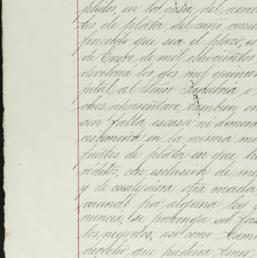 plidos, en la caja, del acree
tes de plata, del año, corrien
fenecido, que sea el plazo, es
de Enero, de mil, ochocientos
devolverá los dos mil quinien
pital, al Señor
ches representare, tambien en
sin falta, escusa ni demora
cesibamente en la misma mo
fuertes de plata en que, le
rédito, con esclusion de
y de cualquiera otra creada
cuando por alguna ley
nuncia, se prolonga
los negocios, así como
derecho que pudiera tener